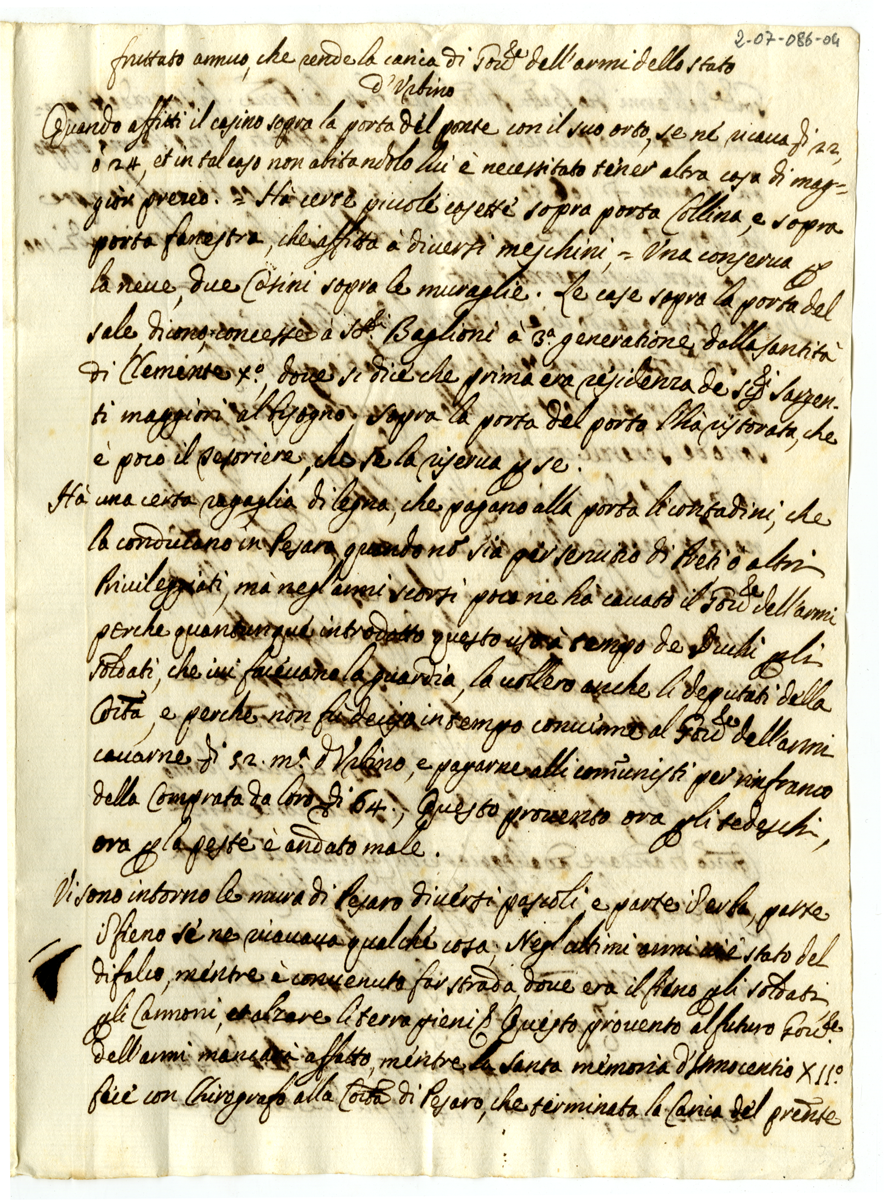 2-07-086-04
fruttato annuo, che rende la carica di Gov.re dell'armi dello stato
d'Urbino
Quando affitti il casino sopra la porta del ponte con il suo orto, se né ricava di 22,
ò 24, et in tal caso non abitandolo lui è necessitato tener altra casa di mag=
gior prezzo. = Hà certe piccole casette sopra porta Collina, e sopra
porta fanestra, che affitta à diversi meschini, = Una conserva p
la neve, due Casini sopra le muraglie. Le case sopra la porta del
sale dicono concesse à Baglioni à 3a generatione dalla santità
di Clemente Xo, dove si dice che prima era residenza de sig.ri Sargen-
ti maggiori al bisogno, sopra la porta del porto l'hà ristorata, che
è poco il Tesoriere, che se la riserva p se.
Hà una certa regaglia di legna, che pagano alla porta li contadini, che
la conducano in Pesaro, quando nō sia per servitio di Preti ò altri
Privileggiati, mà negl'anni scorsi poca ne hà cavato il Gov.re dell'armi
perche quantunque introdotto questo uso à tempo de Duchi p li
soldati, che ivi facevano la guardia, la vollero anche li deputati della
Cōità, e perche non fù decisa in tempo convenne al Gov.re dell'armi
cavarne di 52. m.a d'Urbino, e pagarne alli comunisti per rinfranco
della Comprata da loro di 64., Questo provento ora p li tedeschi,
ora p la peste è andato male.
Vi sono intorno le mura di Pesaro diversi pascoli e parte d'erba, parte
di fieno se ne ricavava qualche cosa, Negl'ultimi anni vi è stato del
difalco, mentre è convenuto far strada, dove era il fieno p li soldati
p li Cannoni, et alzare li terrapieni Questo provento al futuro Gov.re
dell'armi mancarà affatto, mentre la santa memoria d'Innocentio XIIo
fece con Chirografo alla Cōità di Pesaro, che terminata la Carica del prente